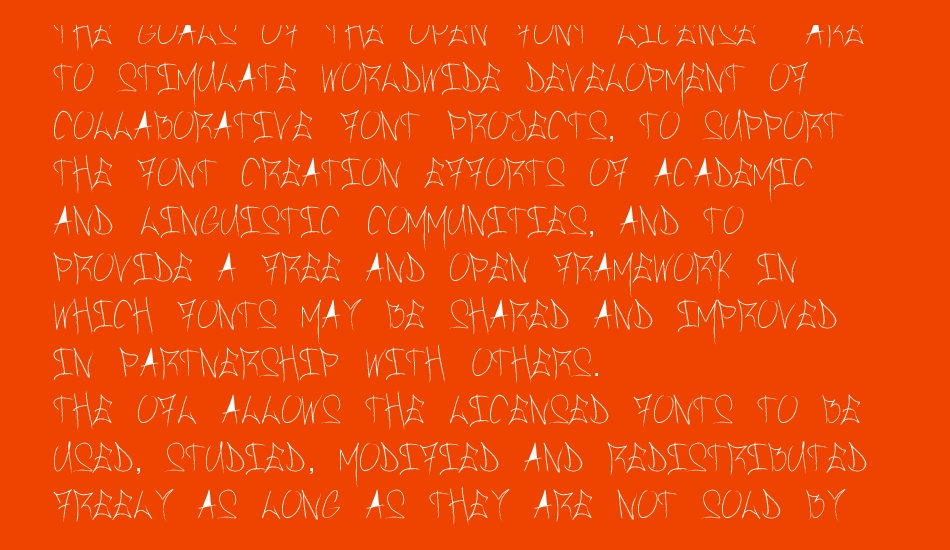 THE GOALS OF THE OPEN FONT LICENSE ARE
TO STIMULATE WORLDWIDE DEVELOPMENT OF
COLLABORATIVE FONT PROJECTS, TO SUPPORT
THE FONT CREATION EFFORTS OF ACADEMIC
AND LINGUISTIC COMMUNITIES, AND TO
PROVIDE A FREE AND OPEN FRAMEWORK IN
WHICH FONTS MAY BE SHARED AND IMPROVED
IN PARTNERSHIP WITH OTHERS.
THE OFL ALLOWS THE LICENSED FONTS TO BE
USED, STUDIED, MODIFIED AND REDISTRIBUTED
FREELY AS LONG AS THEY ARE NOT SOLD BY